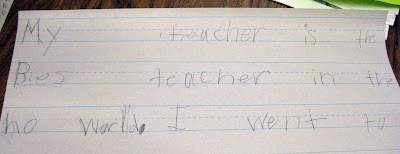 My teacher is the
Bes teacher in the
ho world. I went to